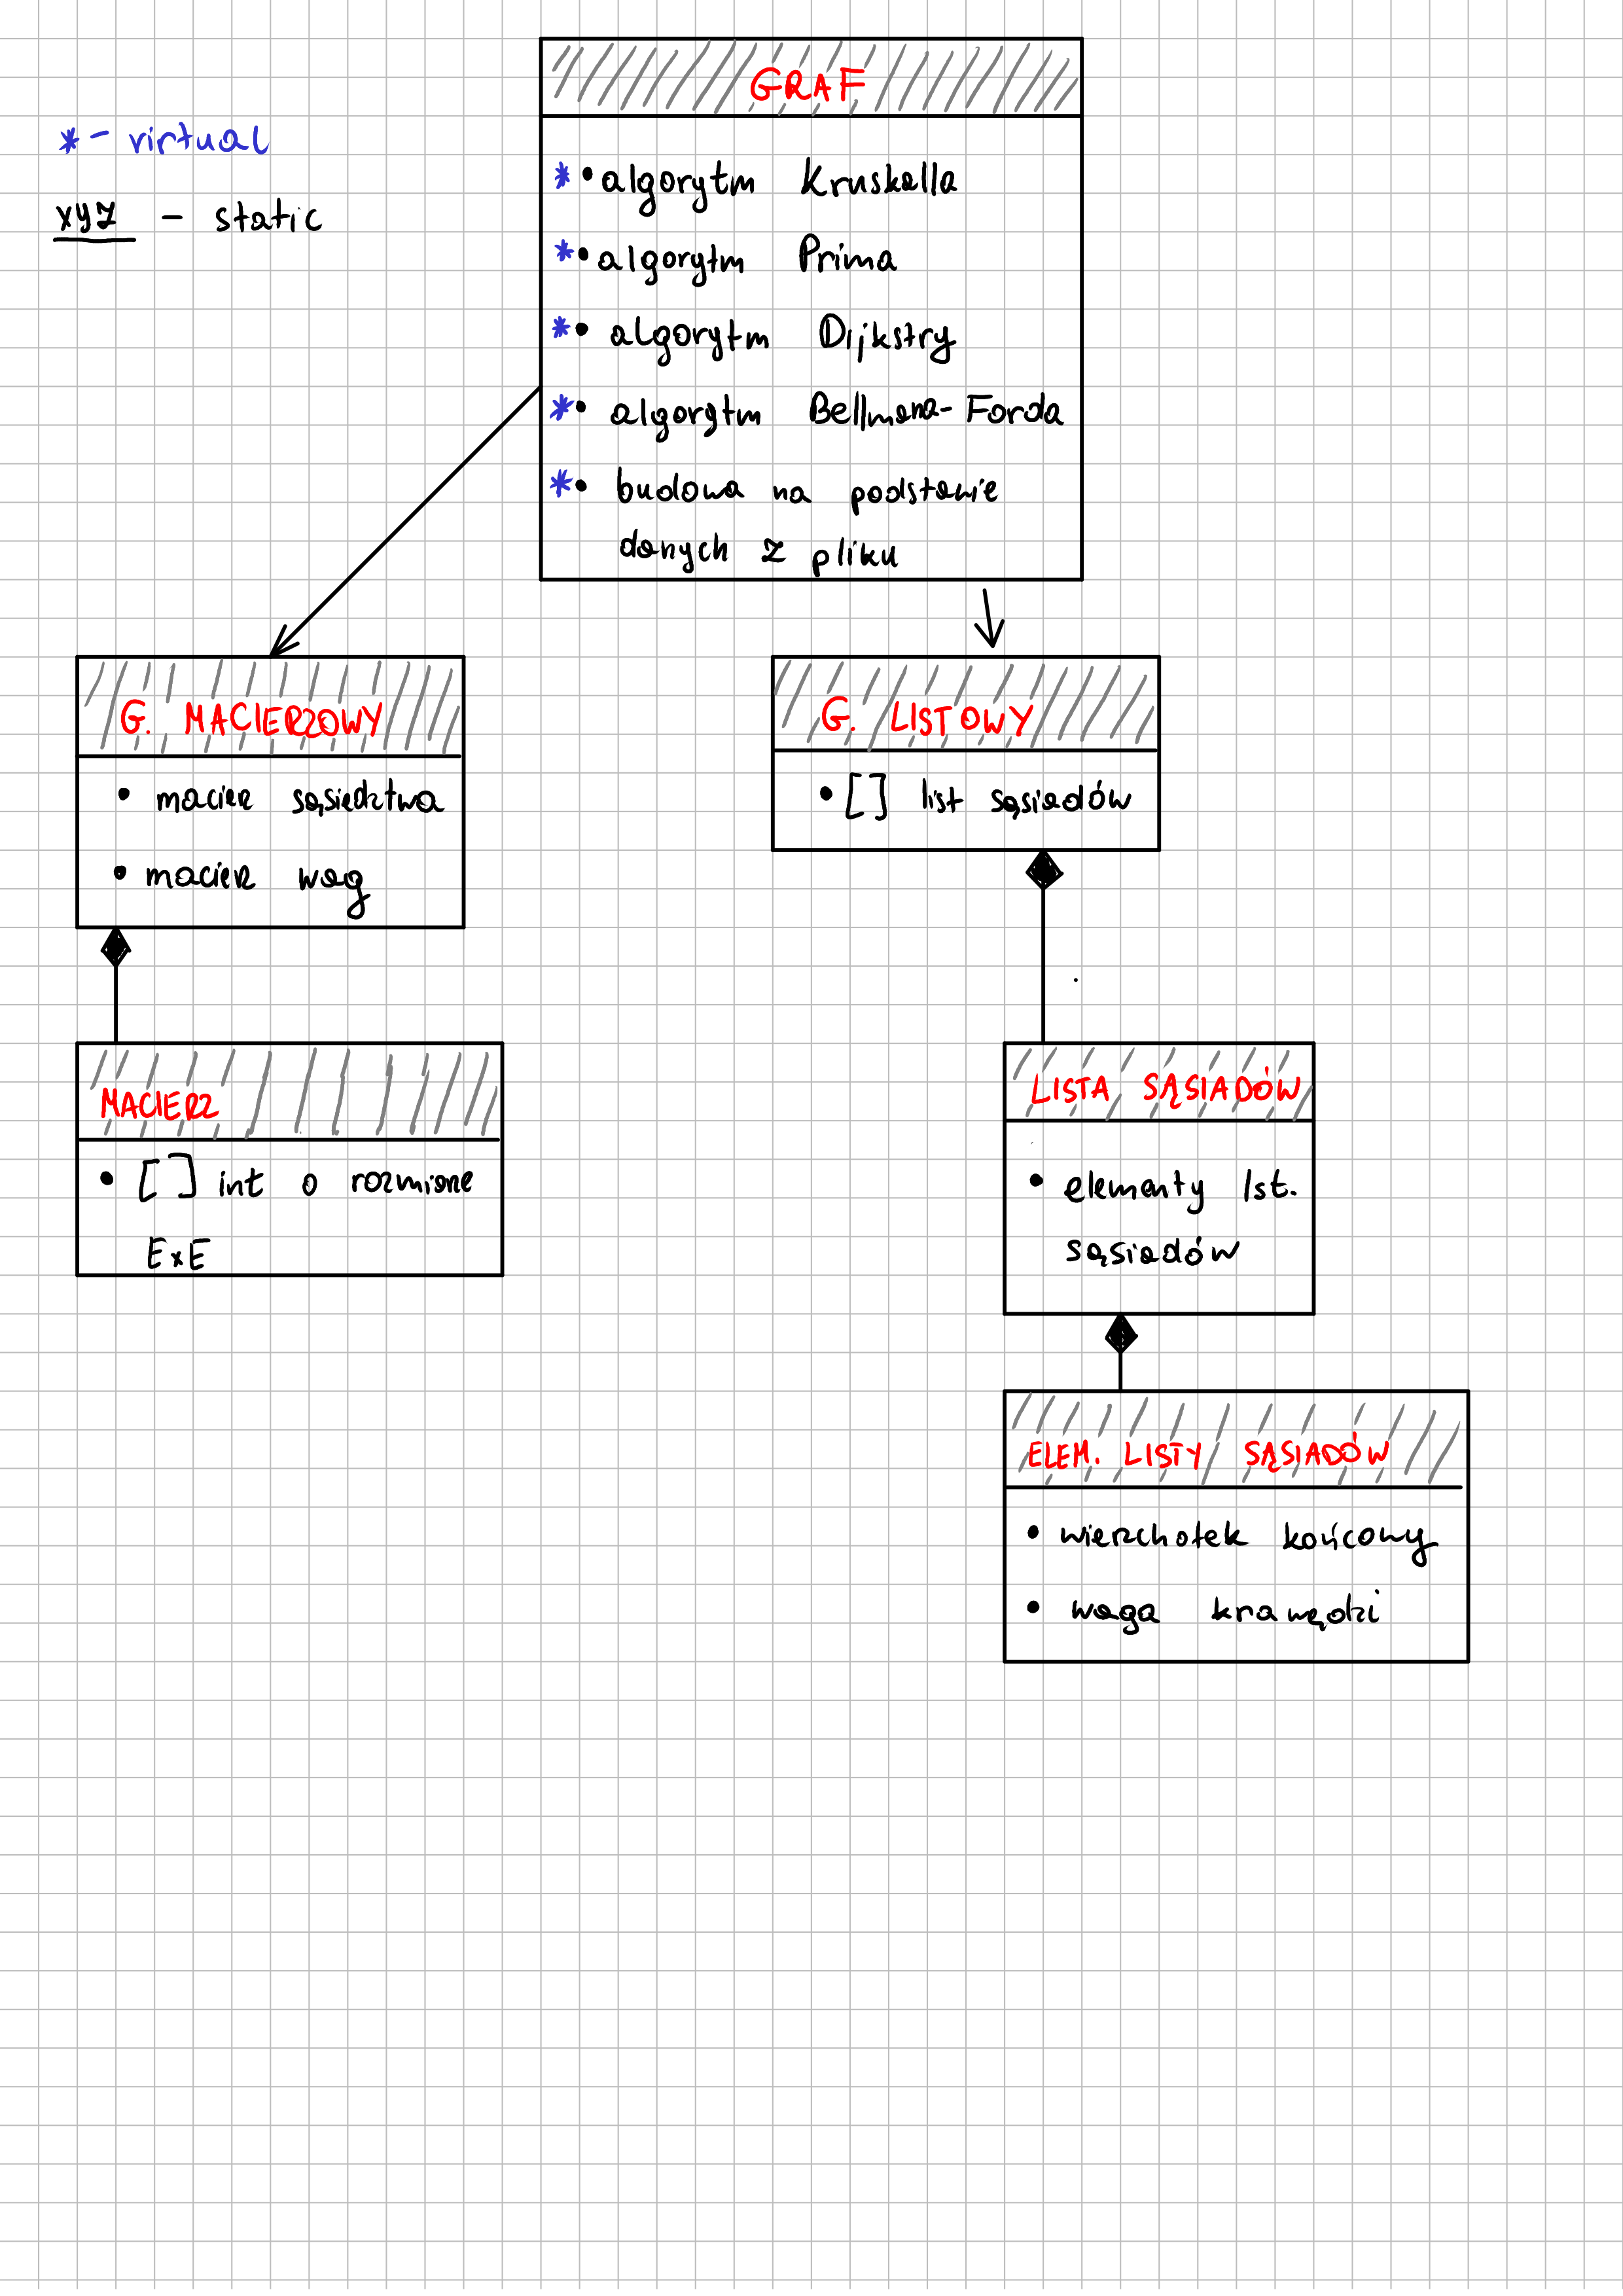 * - virtual
xyz - static
GRAF
* • algorytm Kruskalla
* • algorytm Prima
* • algorytm Dijkstry
* • algorytm Bellmana-Forda
* • budowa na podstawie
danych z pliku
G. MACIERZOWY
• macierz sąsiedztwa
• macierz wag
G. LISTOWY
• [] list sąsiadów
MACIERZ
• [] int o rozmiarze
ExE
LISTA SĄSIADÓW
• elementy lst.
sąsiadów
ELEM. LISTY SĄSIADÓW
• wierzchołek końcowy
• waga krawędzi